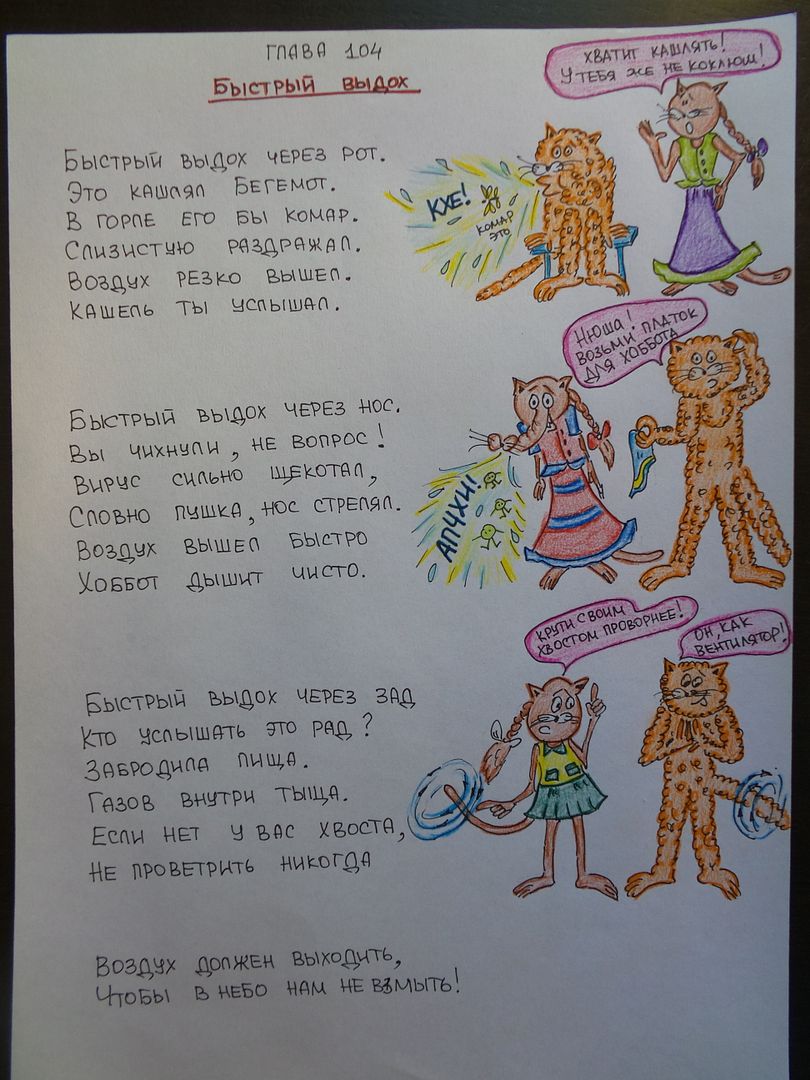 ГЛАВА 104
БЫСТРЫЙ ВЫДОХ
ХВАТИТ КАШЛЯТЬ!
У ТЕБЯ ЖЕ НЕ КОКЛЮШ!
БЫСТРЫЙ ВЫДОХ ЧЕРЕЗ РОТ.
ЭТО КАШЛЯЛ БЕГЕМОТ.
В ГОРЛЕ ЕГО БЫ КОМАР.
СЛИЗИСТУЮ РАЗДРАЖАЛ.
ВОЗДУХ РЕЗКО ВЫШЕЛ.
КАШЕЛЬ ТЫ УСЛЫШАЛ.
КХЕ!
КОМАР
ЭТО
НЮША!
ВОЗЬМИ ПЛАТОК
ДЛЯ ХОББОТА
БЫСТРЫЙ ВЫДОХ ЧЕРЕЗ НОС.
ВЫ ЧИХНУЛИ, НЕ ВОПРОС!
ВИРУС СИЛЬНО ЩЕКОТАЛ,
СЛОВНО ПУШКА, НОС СТРЕЛЯЛ.
ВОЗДУХ ВЫШЕЛ БЫСТРО
ХОББОТ ДЫШИТ ЧИСТО.
АПЧХИ!
КРУТИ СВОИМ
ХВОСТОМ ПРОВОРНЕЕ!
ОН, КАК
ВЕНТИЛЯТОР!
БЫСТРЫЙ ВЫДОХ ЧЕРЕЗ ЗАД
КТО УСЛЫШАТЬ ЭТО РАД?
ЗАБРОДИЛА ПИЩА.
ГАЗОВ ВНУТРИ ТЫЩА.
ЕСЛИ НЕТ У ВАС ХВОСТА,
НЕ ПРОВЕТРИТЬ НИКОГДА
ВОЗДУХ ДОЛЖЕН ВЫХОДИТЬ,
ЧТОБЫ В НЕБО НАМ НЕ ВЗМЫТЬ!